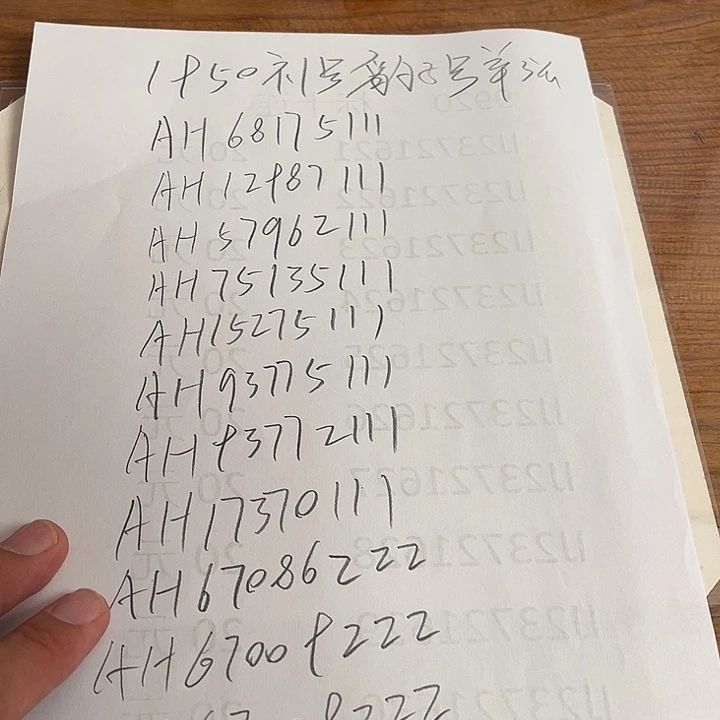 1850补号豹子号单张
AH68175111
AH12887111
AH57962111
AH75135111
AH15275111
AH93775111
AH83772111
AH17370111
AH67086222
AH67008222